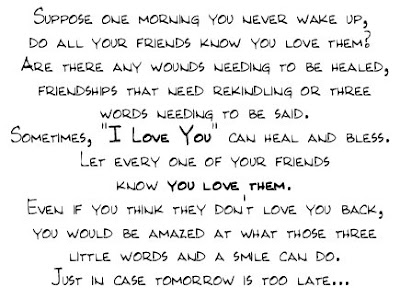 Suppose one morning you never wake up,
do all your friends know you love them?
Are there any wounds needing to be healed,
friendships that need rekindling or three
words needing to be said.
Sometimes, "I Love You" can heal and bless.
Let every one of your friends
know you love them.
Even if you think they don't love you back,
you would be amazed at what those three
little words and a smile can do.
Just in case tomorrow is too late...